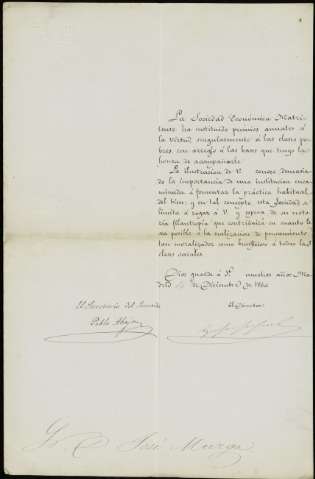 La Sociedad Económica Matri-
tense ha instituido premios anuales á
la virtud singularmente á las clases po-
bres, con arreglo á las bases que tengo la
honra de acompañarle.
La ilustracion de V. conoce demasia
de la importancia de una institucion enca-
minada á fomentar la práctica habitual
del bien; y en tal concepto esta Sociedad se
limita á rogar á V. y espera de su noto-
ria filantropía que contribuirá en cuanto le
sea posible á la realizacion de pensamiento
tan moralizador como benéfico á todas las
clases sociales.
Dios guarde á V. muchos años. Ma-
drid de Diciembre de
El Director
El Secretario del Jurado
Pablo
Sr. D. José Murga